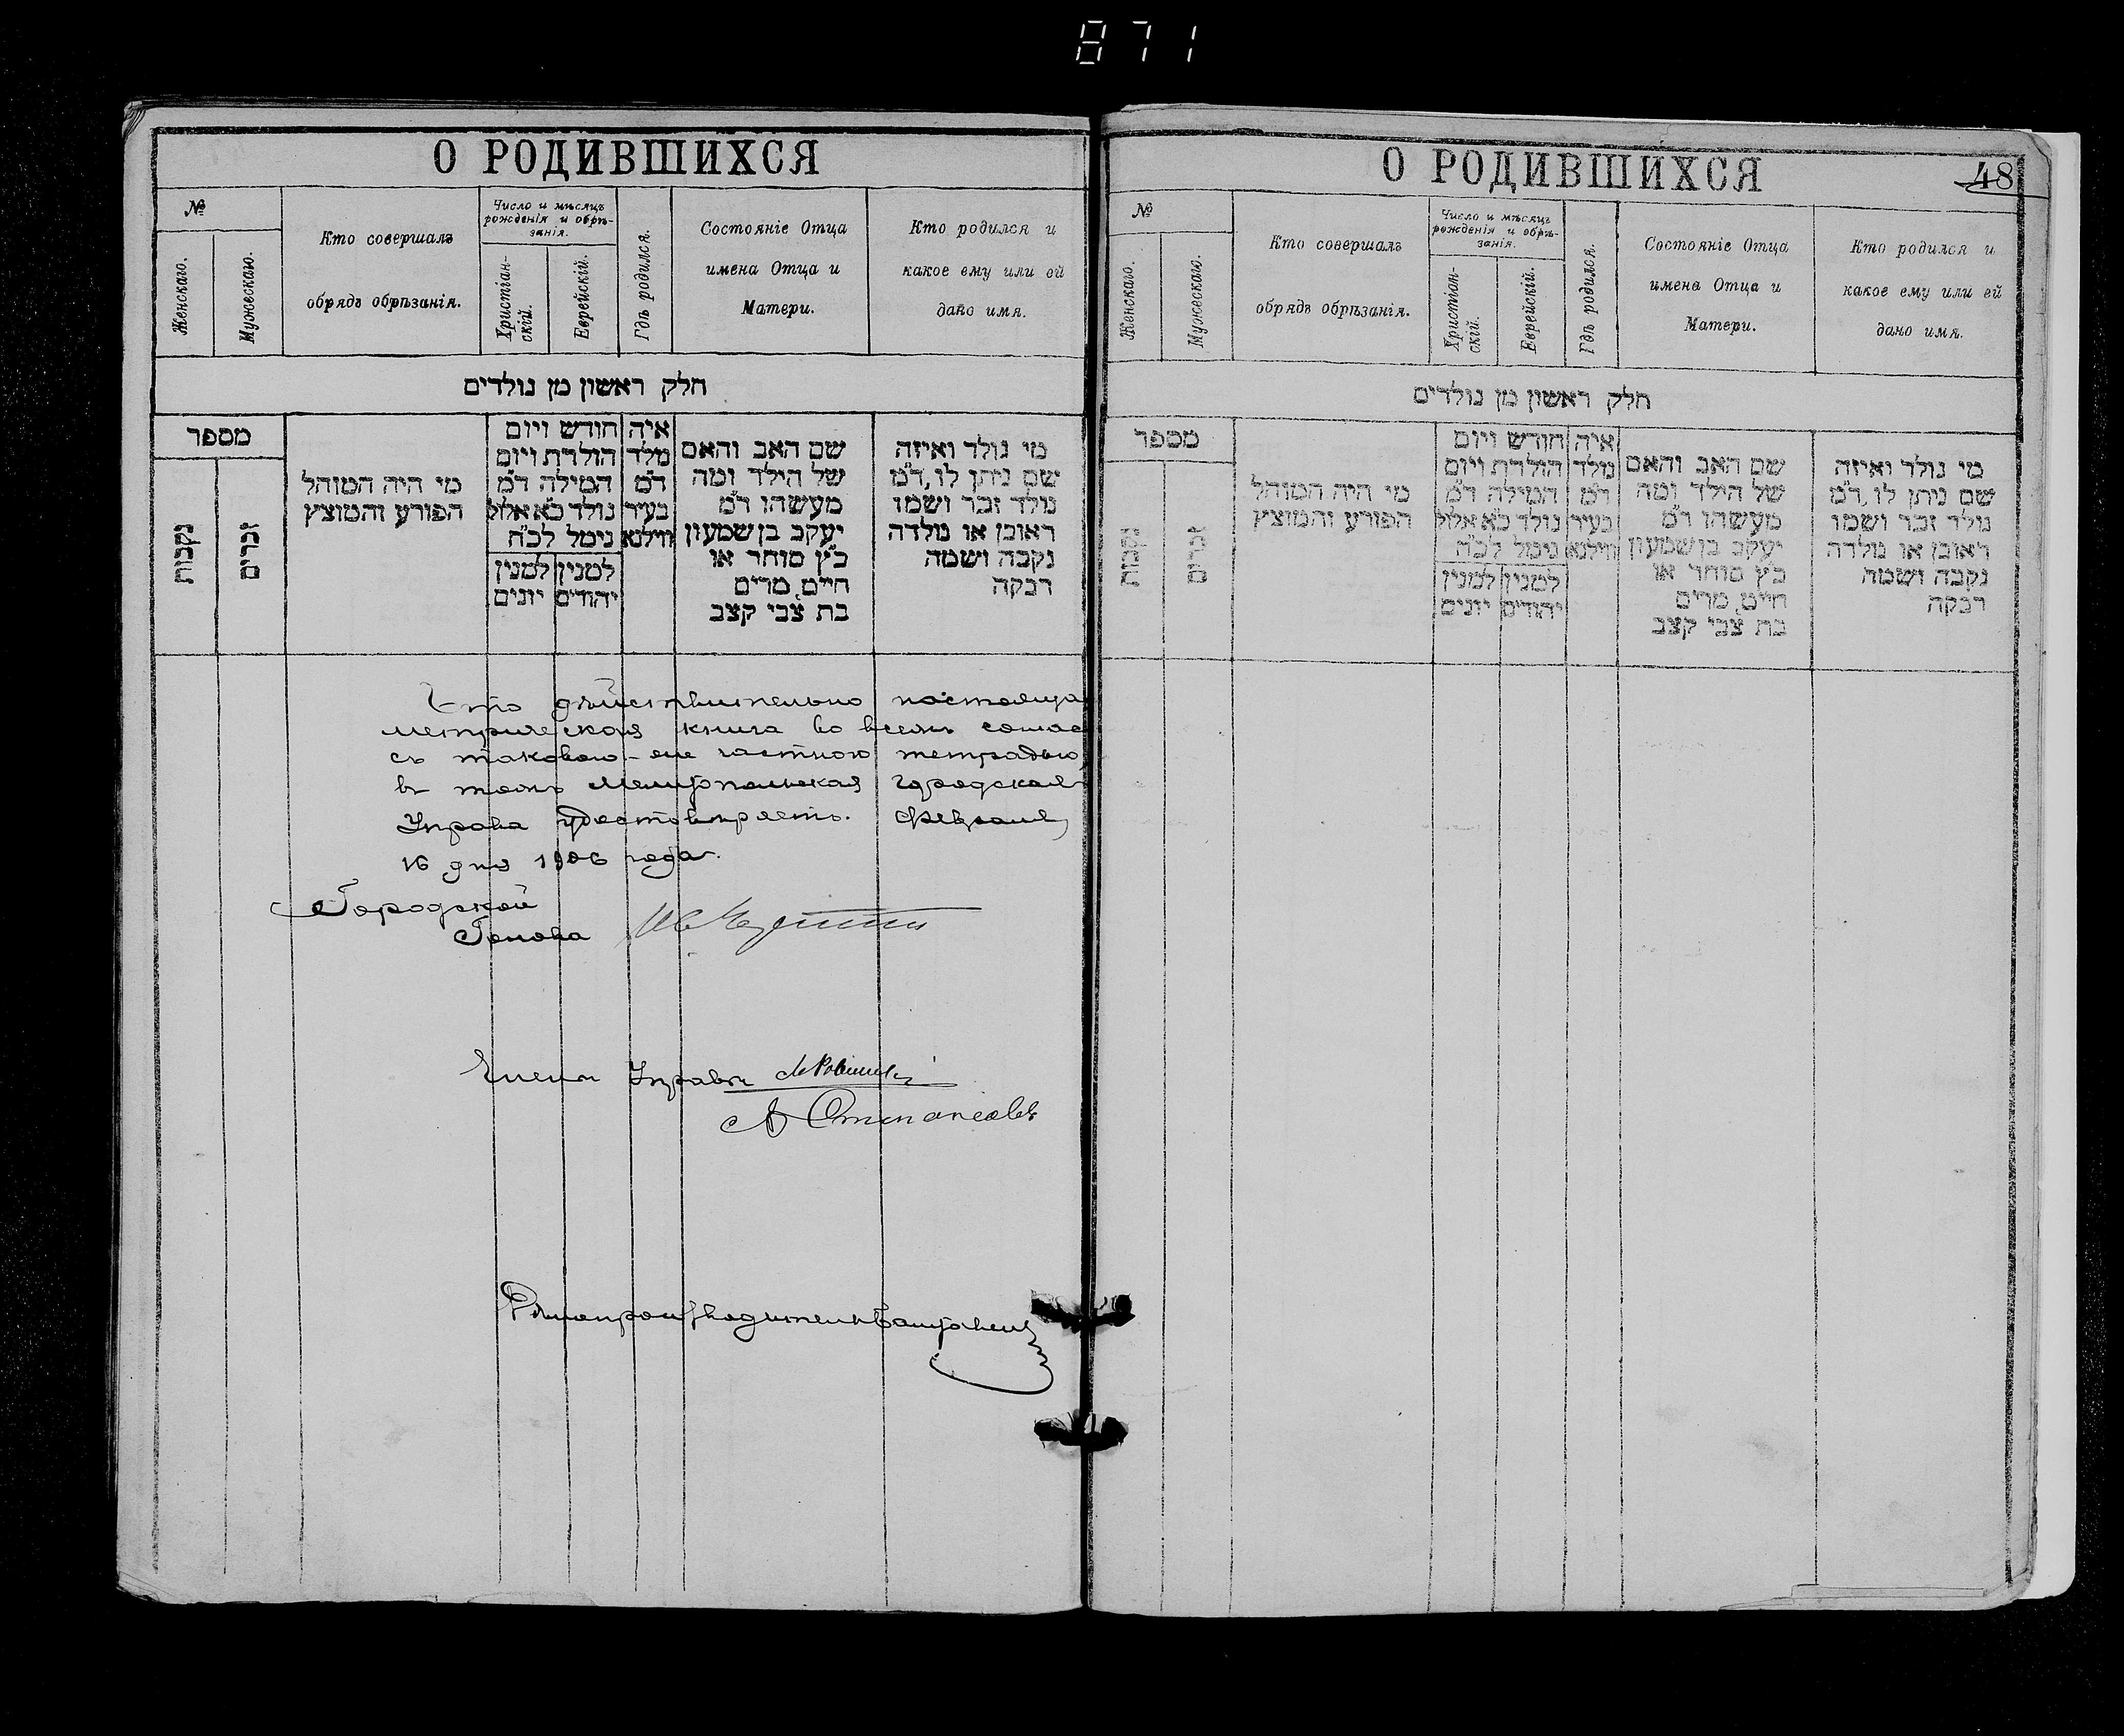 871
О РОДИВШИХСЯ
№
Женскаго.
Мужескаго.
Кто совершалъ
обрядъ обрѣзанія.
Число и мѣсяцъ
рожденія и обрѣ-
занія.
Христіан-
скій.
Еврейскій.
Гдѣ родился.
Состояніе Отца
имена Отца и
Матери.
Кто родился и
какое ему или ей
дано имя.
חלק ראשון מן נולדים
מספר
נקבות
זכרים
מי היה המוהל
הפורע והמוצץ
חודש ויום
הולדת ויום
המילה ד״מ
נולד כ״א אלול
נימל לכ״ח
למנין למנין
יהודים יונים
איה
מלד
ד״מ
בעיר
ווילנא
שם האב והאם
של הילד ומה
מעשהו ד״מ
יעקב בן שמעון
כ״ץ סוחר או
חייט, מרים
בת צבי קצב
מי נולד ואיזה
שם ניתן לו, ד״מ
נולד זכר ושמו
ראובן או נולדה
נקבה ושמה
רבקה
Что дѣйствительно настояща
метрическая книга во всемъ соглас
съ таковою-же частною тетрадью,
въ томъ Мелитопольская Городская
Управа удостовѣряетъ. Февраля
16 дня 1906 года.
Городской
Голова
Члены Управы
Дѣлопроизводитель
О РОДИВШИХСЯ
48
№
Женскаго.
Мужескаго.
Кто совершалъ
обрядъ обрѣзанія.
Число и мѣсяцъ
рожденія и обрѣ-
занія.
Христіан-
скій.
Еврейскій.
Гдѣ родился.
Состояніе Отца
имена Отца и
Матери.
Кто родился и
какое ему или ей
дано имя.
חלק ראשון מן נולדים
מספר
נקבות
זכרים
מי היה המוהל
הפורע והמוצץ
חודש ויום
הולדת ויום
המילה ד״מ
נולד כ״א אלול
נימל לכ״ח
למנין למנין
יהודים יונים
איה
מלד
ד״מ
בעיר
ווילנא
שם האב והאם
של הילד ומה
מעשהו ד״מ
יעקב בן שמעון
כ״ץ סוחר או
חייט, מרים
בת צבי קצב
מי נולד ואיזה
שם ניתן לו, ד״מ
נולד זכר ושמו
ראובן או נולדה
נקבה ושמה
רבקה